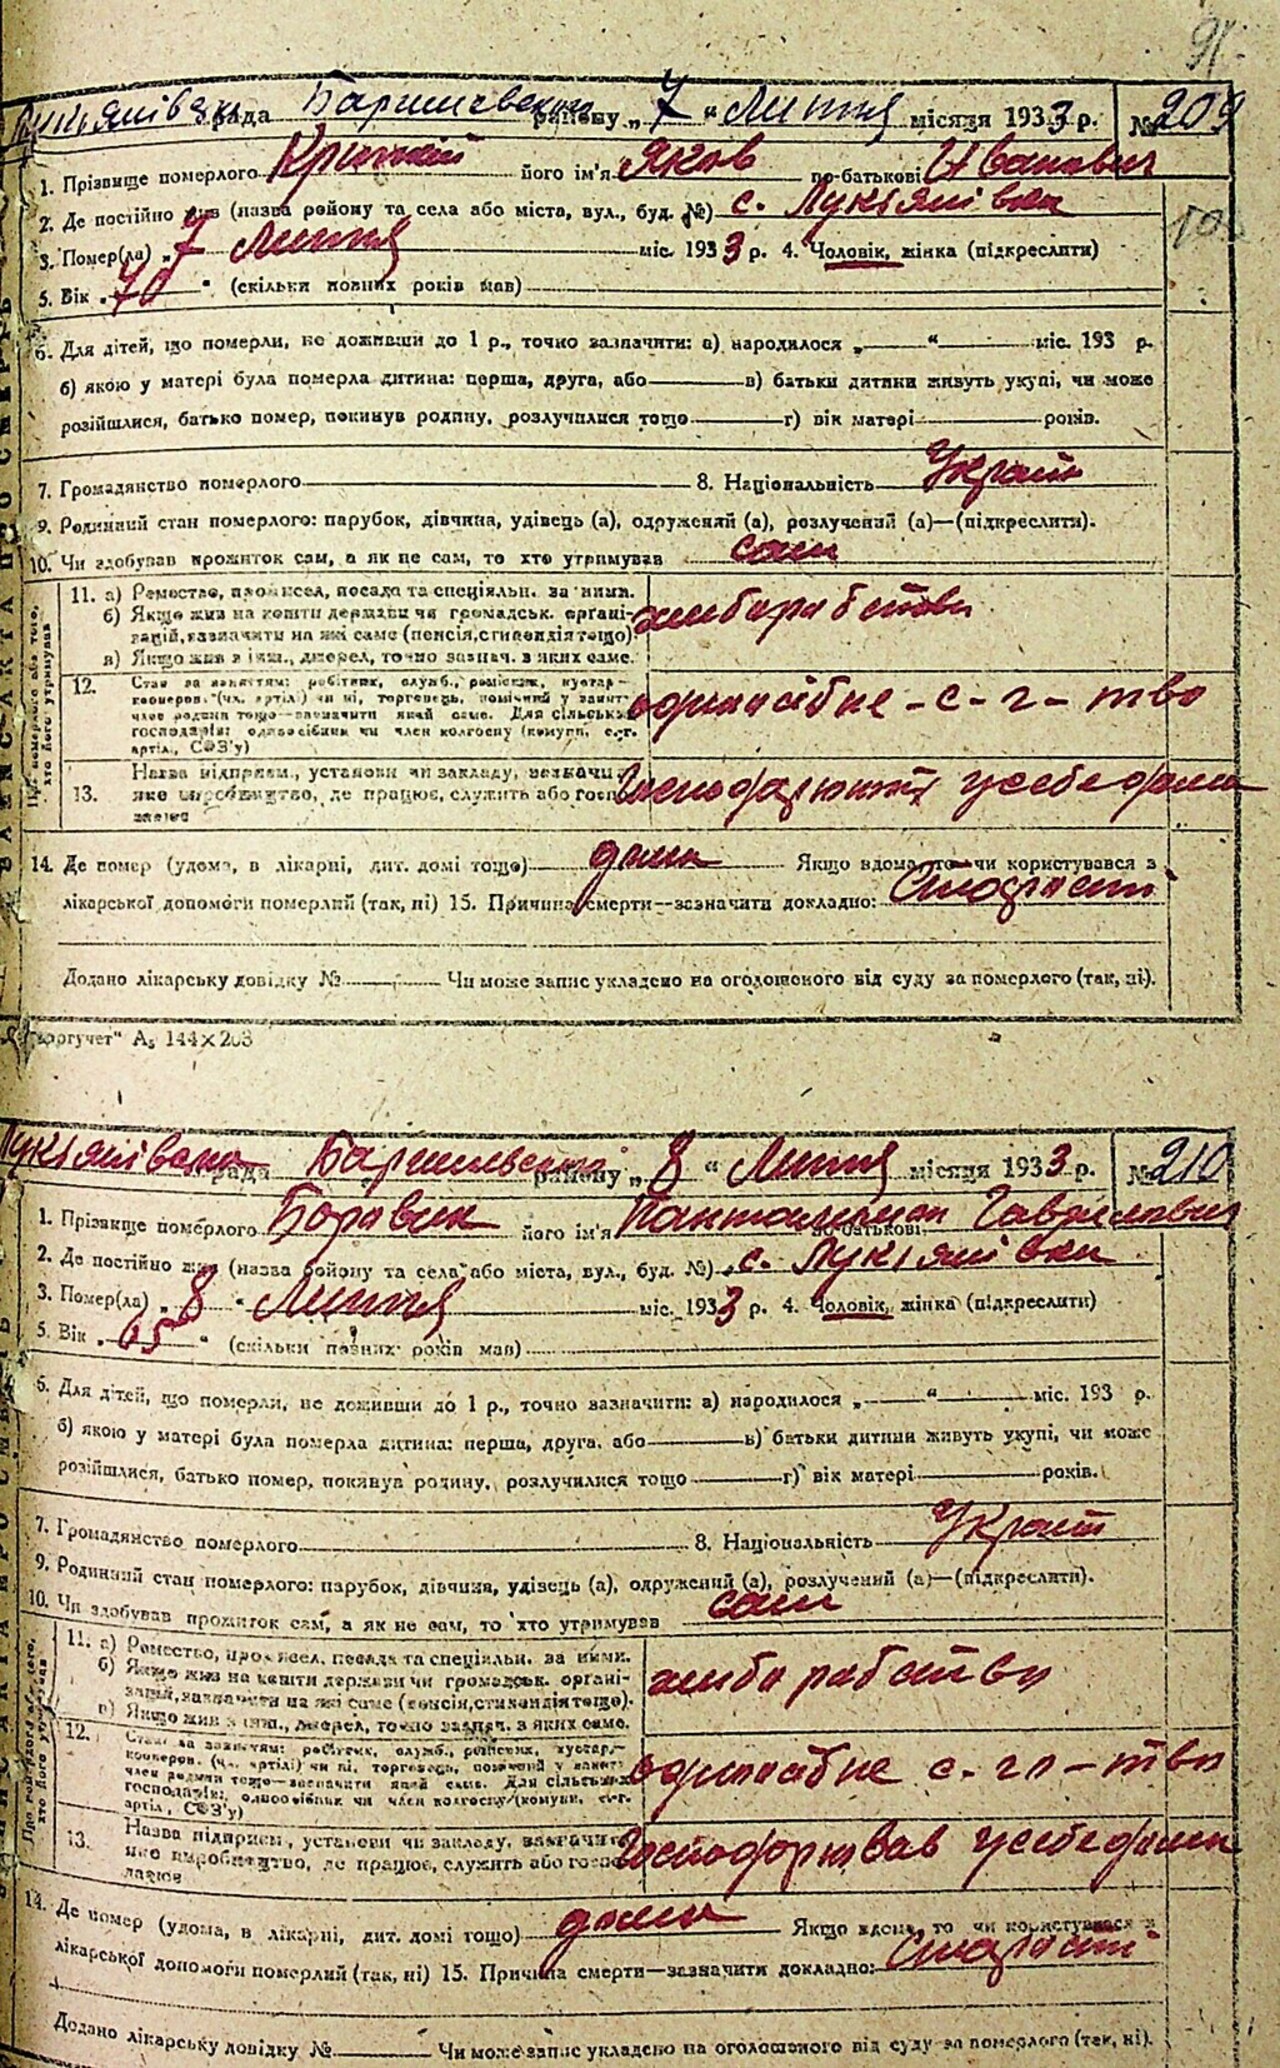 91.
Лук'янівська рада Баришевського району „7“ Липня місяця 1933 р. № 209
1. Прізвище померлого його ім'я Яков по-батькові Иванович
2. Де постійно жив (назва району та села або міста, вул., буд. №) с. Лук'янівка
3. Помер(ла) „7 Липня міс. 1933 р. 4. Чоловік, жінка (підкреслити)
5. Вік „70“ (скільки повних років мав)
6. Для дітей, що померли, не доживши до 1 р., точно зазначити: а) народилося „ “ міс. 193 р.
б) якою у матері була померла дитина: перша, друга, або в) батьки дитини живуть укупі, чи може
розійшлися, батько помер, покинув родину, розлучилися тощо г) вік матері років.
7. Громадянство померлого 8. Національність Україн
9. Родинний стан померлого: парубок, дівчина, удівець (а), одружений (а), розлучений (а)—(підкреслити).
10. Чи здобував прожиток сам, а як не сам, то хто утримував сам
11. а) Ремество, промисел, посада та спеціяльн. за ними.
б) Якщо жив на кошти держави чи громадськ. органі-
зацій, зазначити на які саме (пенсія, стипендія тощо)
в) Якщо жив з інш., джерел, точно зазнач. в яких саме.
хліборобство
12. Стан за заняттям: робітник, служб., ремісник, кустар-
кооперов. (чл. артілі) чи ні, торговець, помічний у занят.
член родини тощо—зазначити який саме. Для сільськ.
господарів: одноосібник чи член колгоспу (комуни, с.-г.
артіл., СОЗ'у)
одноосібне - с - г - тво
13. Назва підприєм., установи чи закладу, зазначити
яке виробництво, де працює, служить або госп
дарює
у себе дома
14. Де помер (удома, в лікарні, дит. домі тощо) дома Якщо вдома, то чи користувався з
лікарської допомоги померлий (так, ні) 15. Причина смерти—зазначити докладно: Старость
Додано лікарську довідку № Чи може запис укладено на оголошеного від суду за померлого (так, ні).
"Торгучет" А5 144×203
Лук'янівська рада Баришевського району „8“ Липня місяця 1933 р. № 210
1. Прізвище померлого Боровик його ім'я Пантелимон по-батькові Гаврилович
2. Де постійно жив (назва району та села або міста, вул., буд. №) с. Лук'янівка
3. Помер(ла) „8“ Липня міс. 1933 р. 4. Чоловік, жінка (підкреслити)
5. Вік „65“ (скільки повних років мав)
6. Для дітей, що померли, не доживши до 1 р., точно зазначити: а) народилося „ “ міс. 193 р.
б) якою у матері була померла дитина: перша, друга, або в) батьки дитини живуть укупі, чи може
розійшлися, батько помер, покинув родину, розлучилися тощо г) вік матері років.
7. Громадянство померлого 8. Національність Україн
9. Родинний стан померлого: парубок, дівчина, удівець (а), одружений (а), розлучений (а)—(підкреслити).
10. Чи здобував прожиток сам, а як не сам, то хто утримував сам
11. а) Ремество, промисел, посада та спеціяльн. за ними.
б) Якщо жив на кошти держави чи громадськ. органі-
зацій, зазначити на які саме (пенсія, стипендія тощо).
в) Якщо жив з інш., джерел, точно зазнач. з яких саме.
хліборобство
12. Стан за заняттям: робітник, служб., ремісник, кустар-
кооперов. (чл. артілі) чи ні, торговець, помічний у занят.
член родини тощо—зазначити який саме. Для сільськ.
господарів: одноосібник чи член колгоспу (комуни, с.-г.
артіл., СОЗ'у)
одноосібне с - гп - тво
13. Назва підприєм., установи чи закладу, зазначити
яке виробництво, де працює, служить або госпо
дарює
Господорював у себе дома
14. Де помер (удома, в лікарні, дит. домі тощо) дома Якщо вдома, то чи користувався з
лікарської допомоги померлий (так, ні) 15. Причина смерти—зазначити докладно: Старость
Додано лікарську довідку № Чи може запис укладено на оголошеного від суду за померлого (так, ні).